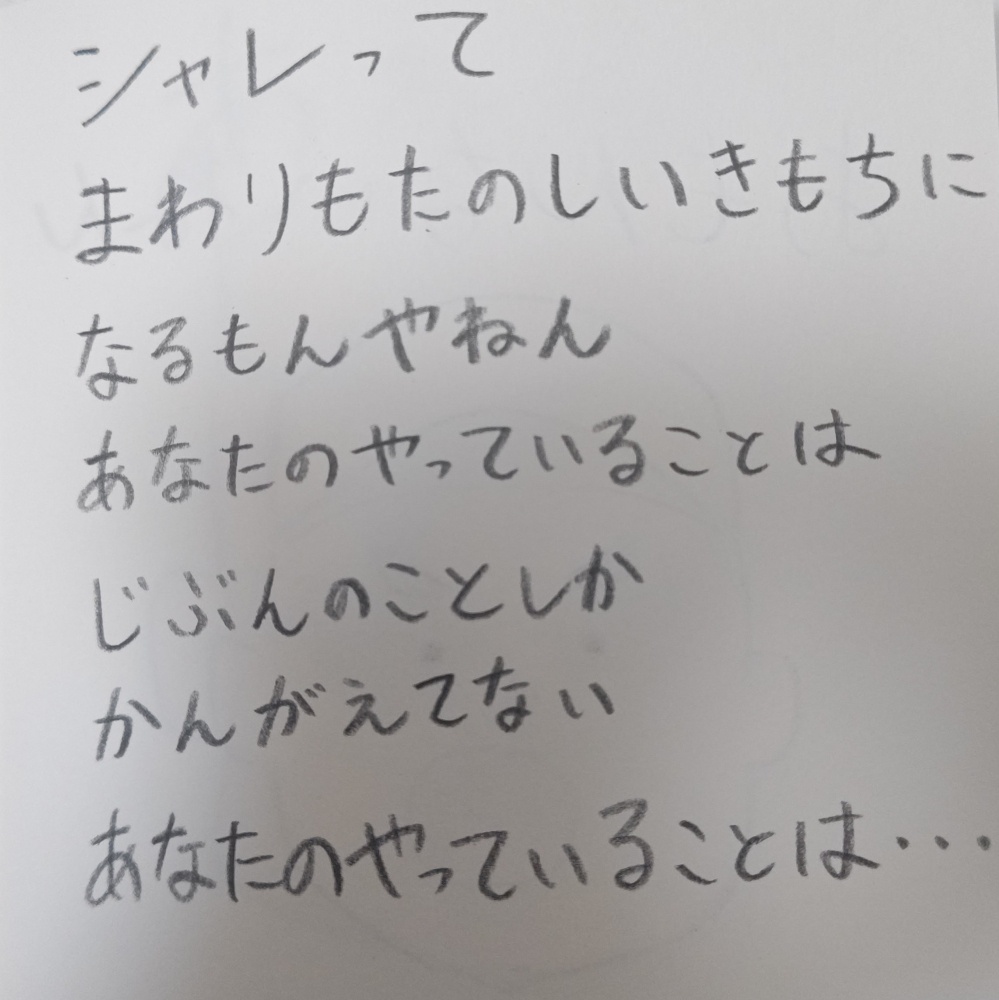 シャレって
まわりもたのしいきもちに
なるもんやねん
あなたのやっていることは
じぶんのことしか
かんがえてない
あなたのやっていることは・・・